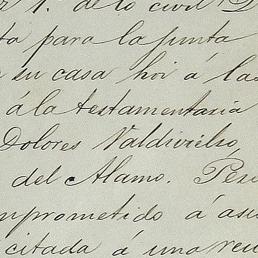 1. de lo civil D
ta para la junta
su casa hoi á las
á la testamentaria
Dolores Valdivilso,
del Alamo. Pero
mprometido á asis
citada á una reu